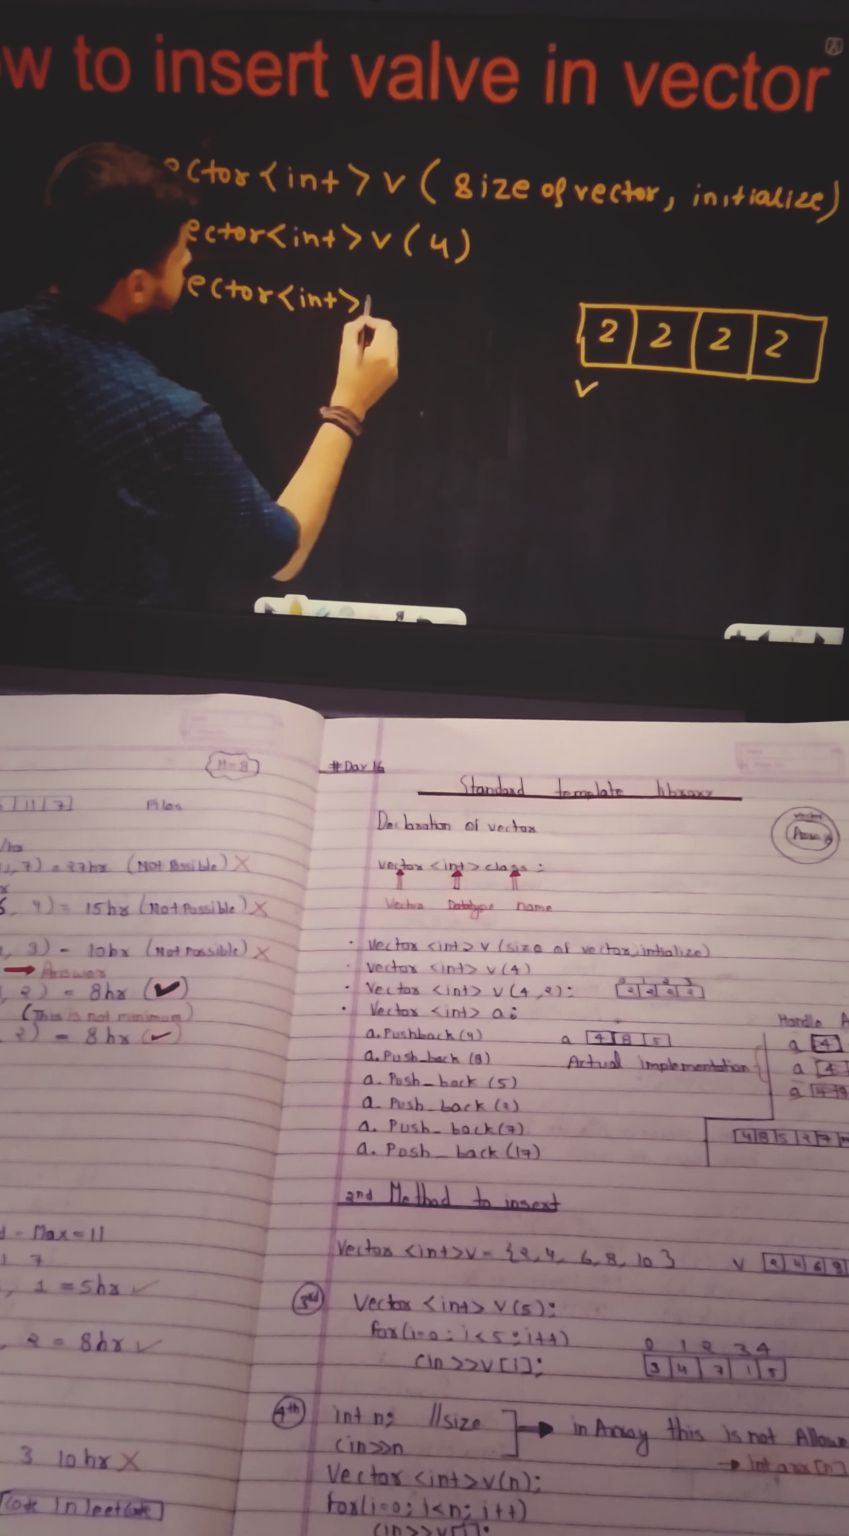 w to insert valve in vector
ector<int> v ( size of vector, initialize)
ector<int> v ( 4 )
ector<int>
2 2 2 2
v
M=8
11 7 Piles
, 7) = 27hr (Not Possible) X
, 4) = 15hr (Not Possible) X
, 3) - 10hr (Not Possible) X
→ Answer
, 2) = 8hr (✔)
(This is not minimum)
2) = 8hr (✓)
- Max = 11
7
, 1 = 5hr ✓
2 = 8hr ✓
3 10hr X
Code In leetcode
#Day 16
Standard template library
Declaration of vector
vector
Array
vector <int> class ;
Vector Datatype name
• Vector <int> v (size of vector, intialize)
• vector <int> v(4)
• Vector <int> v (4,2);
0 1 2 3
2 2 2 2
• Vector <int> a;
a.Pushback (4) a 4 8 5
a.Push_back (8) Actual implementation
a. Push_back (5)
a. Push_back (2)
a. Push_back (7)
a. Push_back (17)
Handle A
a 4
a 4
a 4 8
4 8 5 2 7
2nd Method to insert
Vector <int> v = {2, 4, 6, 8, 10} v 2 4 6 8
3rd Vector <int> v(5);
for(i=0; i<5; i++)
cin>>v[i];
0 1 2 3 4
3 4 7 1 5
4th int n; //size
cin>>n
→ in Array this is not Allow
→ int arr[n]
Vector <int> v(n);
for(i=0; i<n; i++)
cin>>v[i];